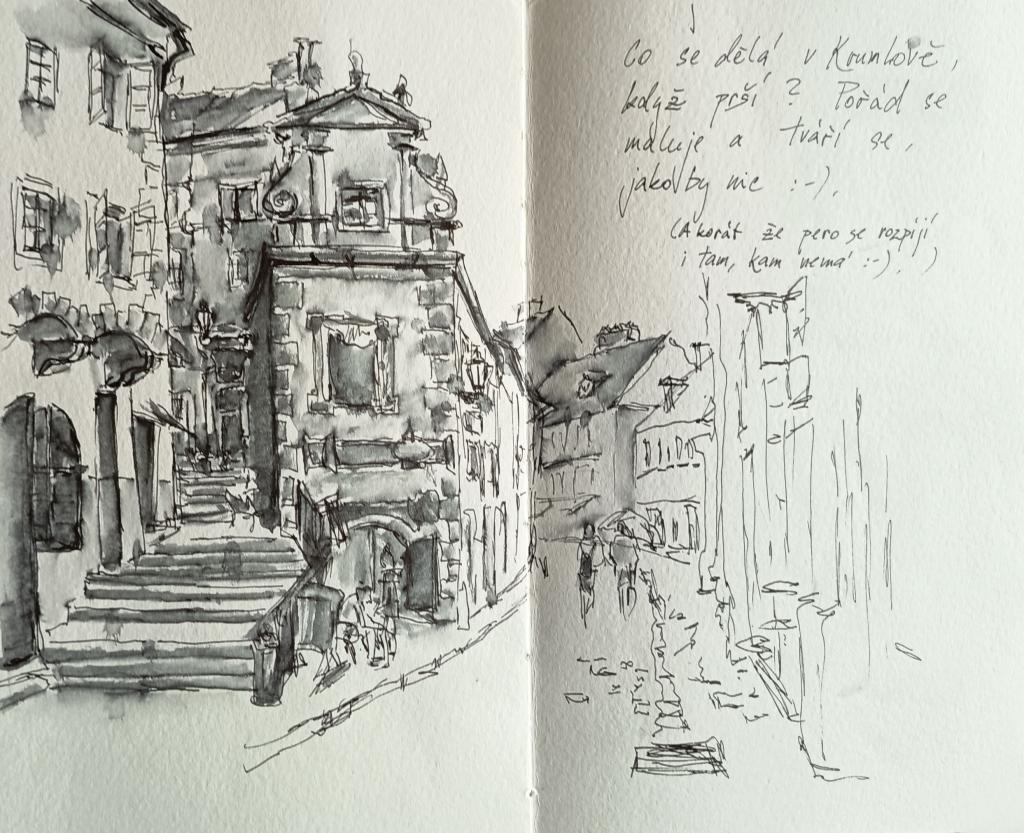 Co se dělá v Krumlově,
když prší? Pořád se
maluje a tváří se,
jakoby nic :-).
(Akorát že pero se rozpíjí
i tam, kam nemá :-). )